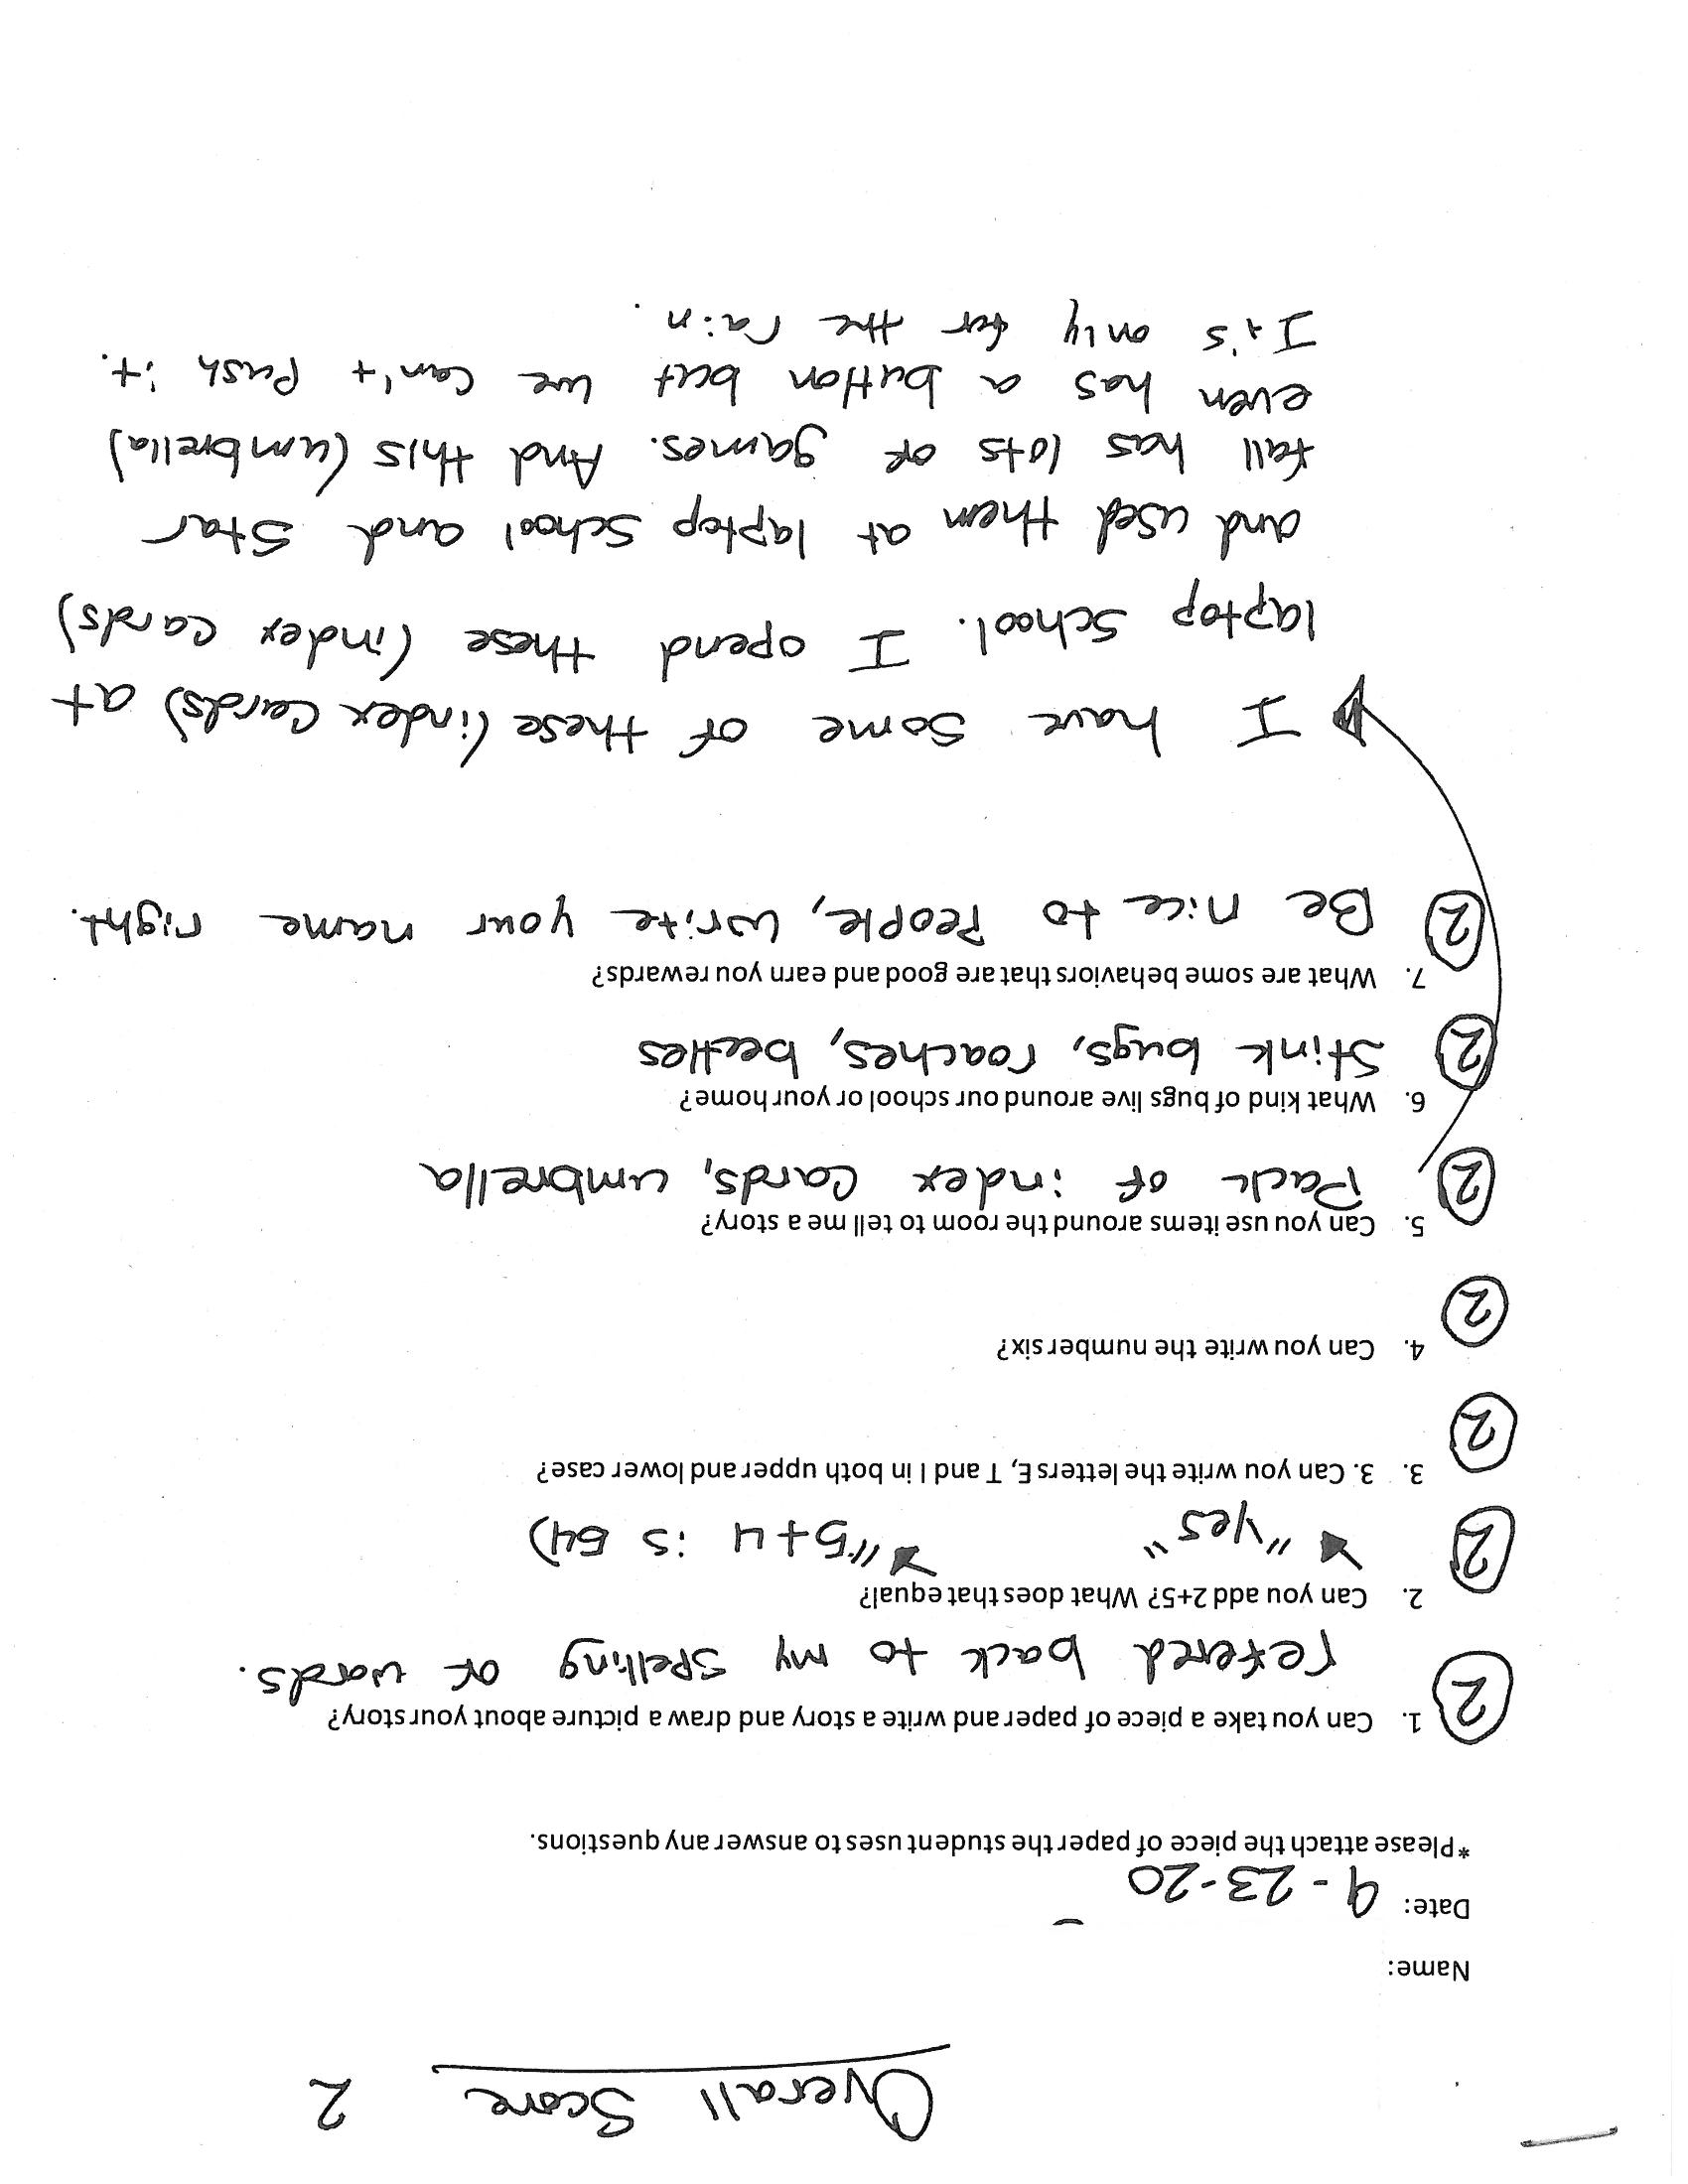 Overall Score 2
Name:
Date: 9-23-20
*Please attach the piece of paper the student uses to answer any questions.
1. Can you take a piece of paper and write a story and draw a picture about your story?
2 refered back to my spelling of words.
2. Can you add 2+5? What does that equal?
2 "yes" "5+4 is 54)
3. 3. Can you write the letters E, T and I in both upper and lower case?
2
4. Can you write the number six?
2
5. Can you use items around the room to tell me a story?
2 Pack of index cards, umbrella
6. What kind of bugs live around our school or your home?
2 Stink bugs, roaches, beetles
7. What are some behaviors that are good and earn you rewards?
2 Be nice to People, write your name right.
I have some of these (index cards) at
laptop school. I opend these (index cards)
and used them at laptop school and Star
fall has lots of games. And this (umbrella)
even has a button but we can't Push it.
It's only for the rain.